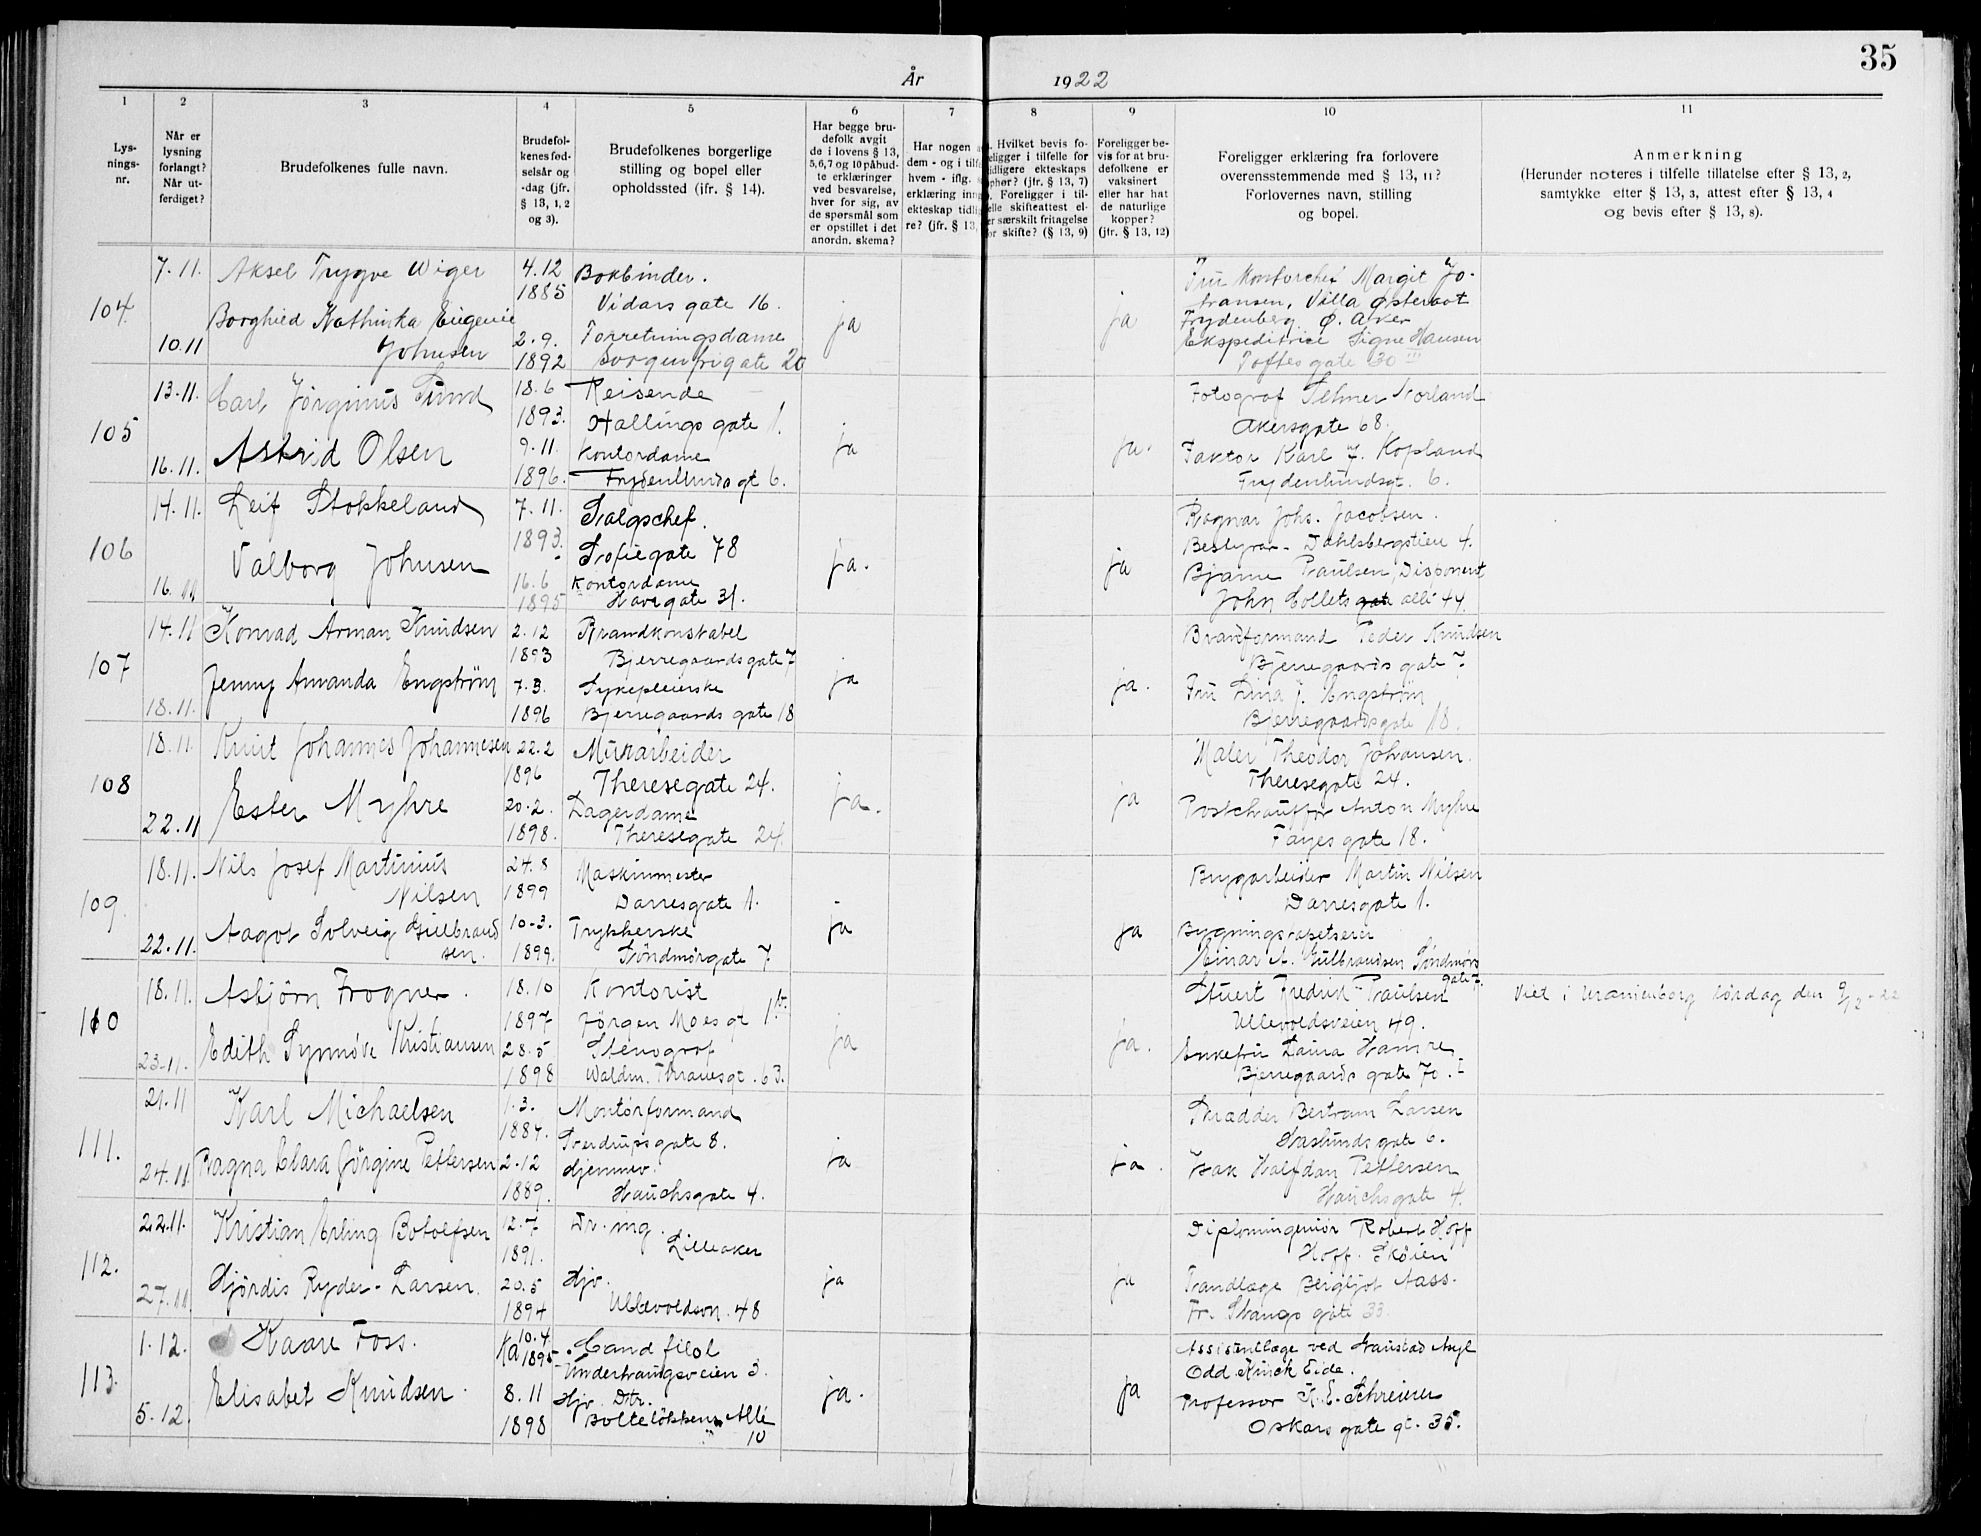 35
År 1922
1
2
3
4
5
6
7
8
9
10
11
Lys-
nings-
nr.
Når er
lysning
forlangt?
Når ut-
ferdiget?
Brudefolkenes fulle navn.
Brudefol-
kenes fød-
selsår og
-dag (jfr.
§ 13, 1, 2
og 3).
Brudefolkenes borgerlige
stilling og bopel eller
opholdssted (jfr. § 14).
Har begge bru-
defolk avgit
de i lovens § 13,
5, 6, 7 og 10 påbud-
te erklæringer
ved besvarelse,
hver for sig, av
de spørsmål som
er opstillet i det
anordn. skema?
Har nogen
dem - og i tilf
hvem - iflg.
erklæring inng
ekteskap tidlig
re? (jfr. § 13,
Hvilket bevis fo-
religger i tilfelle for
tidligere ekteskaps
ophør? (jfr. § 13, 7)
Foreligger i til-
felle skifteattest el-
er særskilt fritagelse
or skifte? (§ 13, 9)
Foreligger be-
vis for at bru-
defolkene er
vaksinert
eller har hat
de naturlige
kopper?
(jfr. § 13, 12)
Foreligger erklæring fra forlovere
overensstemmende med § 13, 11?
Forlovernes navn, stilling
og bopel.
Anmerkning
(Herunder noteres i tilfelle tillatelse efter § 13, 2,
samtykke efter § 13, 3, attest efter § 13, 4
og bevis efter § 13, 8).
104. 7.11. Aksel Trygve Wiger 4.12 1885 Bokbinder.
Vidars gate 16.
10.11 Borghild Kathinka Eugenie
Johnsen 2.9. 1892 Forretningsdame
Sorgenfrigate 20
ja ja
Fru Kontorchef Margit Jo-
hansen, Villa Østerbot
Frydenberg Ø. Aker
Ekspeditrice Signe Hansen
Toftes gate 30 III
105 13.11. Carl Jørginus Sund 18.6 1893. Reisende
Hallings gate 1.
16.11. Astrid Olsen 9.11. 1896. Kontordame
Frydenlunds gt 6.
ja ja.
Fotograf Selmer Norland
Akersgate 68.
Faktor Karl J. Kopland
Frydenlundsgt. 6.
106 14.11. Leif Stokkeland 7.11. 1893. Salgschef.
Sofiegate 78
16.11 Valborg Johnsen 16.6 1895 Kontordame
Havegate 31.
ja. ja
Ragnar Johs. Jacobsen.
Bestyrer - Dahlsbergstien 4.
Bjarne Paulsen, Disponent,
John Collets gate allé 44
107 14.11 Konrad Arman Knudsen 2.12 1893 Brandkonstabel
Bjerregaards gate 7
18.11. Jenny Amanda Engström 7.3. 1896 Sykepleierske
Bjerregaards gate 18
ja ja.
Branformand Peder Knudsen
Bjerregaards gate 7.
Fru Lina J. Engström
Bjerregaardsgate 18.
108 18.11. Knut Johannes Johannesen 22.2 1896 Murarbeider
Theresegate 24.
22.11 Ester Myhre 20.2. 1898. Lagerdame
Theresegate 24.
ja. ja
Maler Theodor Johansen.
Theresegate 24.
Postchauffør Anton Myhre
Fayes gate 18.
109. 18.11. Nils Josef Martinius
Nilsen 24.8 1899 Maskinmester
Darresgate 1.
22.11. Aagot Solveig Gulbrand
sen. 10-3. 1899. Trykkerske
Söndmørgate 7
ja ja
Brygarbeider Martin Nilsen
Darresgate 1.
Bygningstapetserer
Einar A. Gulbrandsen Söndmörs
gate 7.
110 18.11. Asbjörn Frogner. 18.10 1897 Kontorist
Jørgen Moes gt 1 b.
23.11. Edith Synnøve Kristiansen 28.5 1898 Stenograf
Waldm. Thranesgt. 63.
ja ja.
Stuert Fredrik Paulsen
Ullevoldsveien 49.
Enkefru Laura Hamre
Bjerregaards gate 70.
Viet i Uranienborg lørdag den 9/12-22
111. 21.11 Karl Michaelsen 1.3. 1884. Montørformand
Sverdrups gate 8.
24.11. Ragna Clara Jörgine Pettersen 2.12 1889. Hjemmev.
Hauchsgate 4.
ja ja.
Skrædder Bertram Larsen
Haslunds gate 6.
Isak Halfdan Pettersen
Hauchsgate 4.
112. 22.11. Kristian Erling Botolfsen 12.7 1891. Dr. ing.
Lilleaker
27.11. Hjördis Ryder-Larsen. 20.5 1894 Hjv.
Ullevoldsvn. 48
ja ja
Diplomingeniör Robert Hoff
Hoff. Sköien
Tandlæge Bergljot Aass.
Fr. Stangs gate 33
113. 1.12. Kaare Foss. 10.4 1895 Cand filol
Underhaugsveien 3.
5.12. Elisabet Knudsen. 8.11 1898 Hjv. Dtr.
Bolteløkkens Allé
10
ja. ja
Assistentlæge ved Gaustad Asyl
Odd Kinck Eide.
Professor K. E. Schreiner
Oskars gate gt. 35.